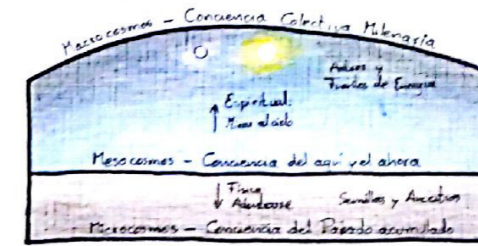 Macrocosmos – Conciencia Colectiva Milenaria
y
Fuentes de Energía
↑ Espiritual:
Mirar al cielo
Mesocosmos – Conciencia del aquí y el ahora
↓ Física
Semillas y Ancestros
Microcosmos – Conciencia del Pasado acumulado